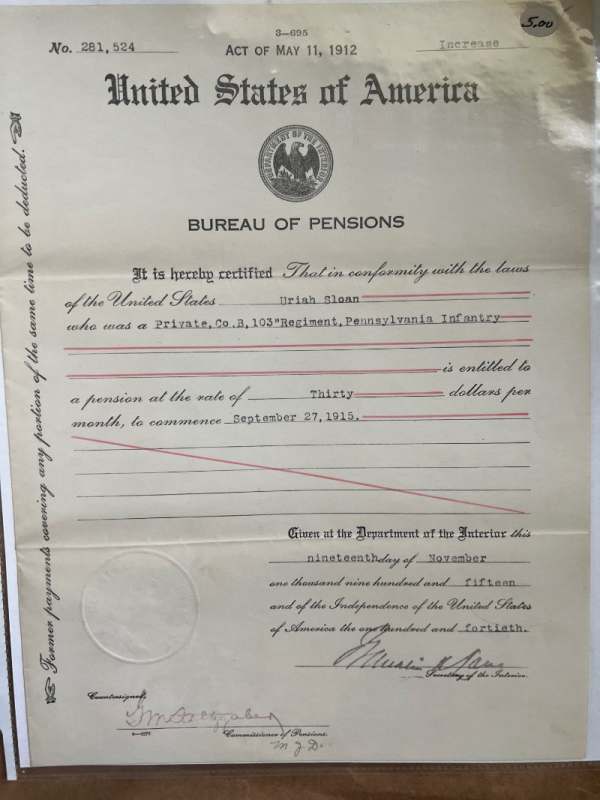 5.00
3—695
No. 281,524 ACT OF MAY 11, 1912 Increase
United States of America
DEPARTMENT OF THE INTERIOR
BUREAU OF PENSIONS
It is hereby certified That in conformity with the laws
of the United States Uriah Sloan
who was a Private, Co.B, 103" Regiment, Pennsylvania Infantry
is entitled to
a pension at the rate of Thirty dollars per
month, to commence September 27, 1915.
Given at the Department of the Interior this
nineteenth day of November
one thousand nine hundred and fifteen
and of the Independence of the United States
of America the one hundred and fortieth.
Secretary of the Interior.
Countersigned,
Commissioner of Pensions.
M.J.D.
Former payments covering any portion of the same time to be deducted.